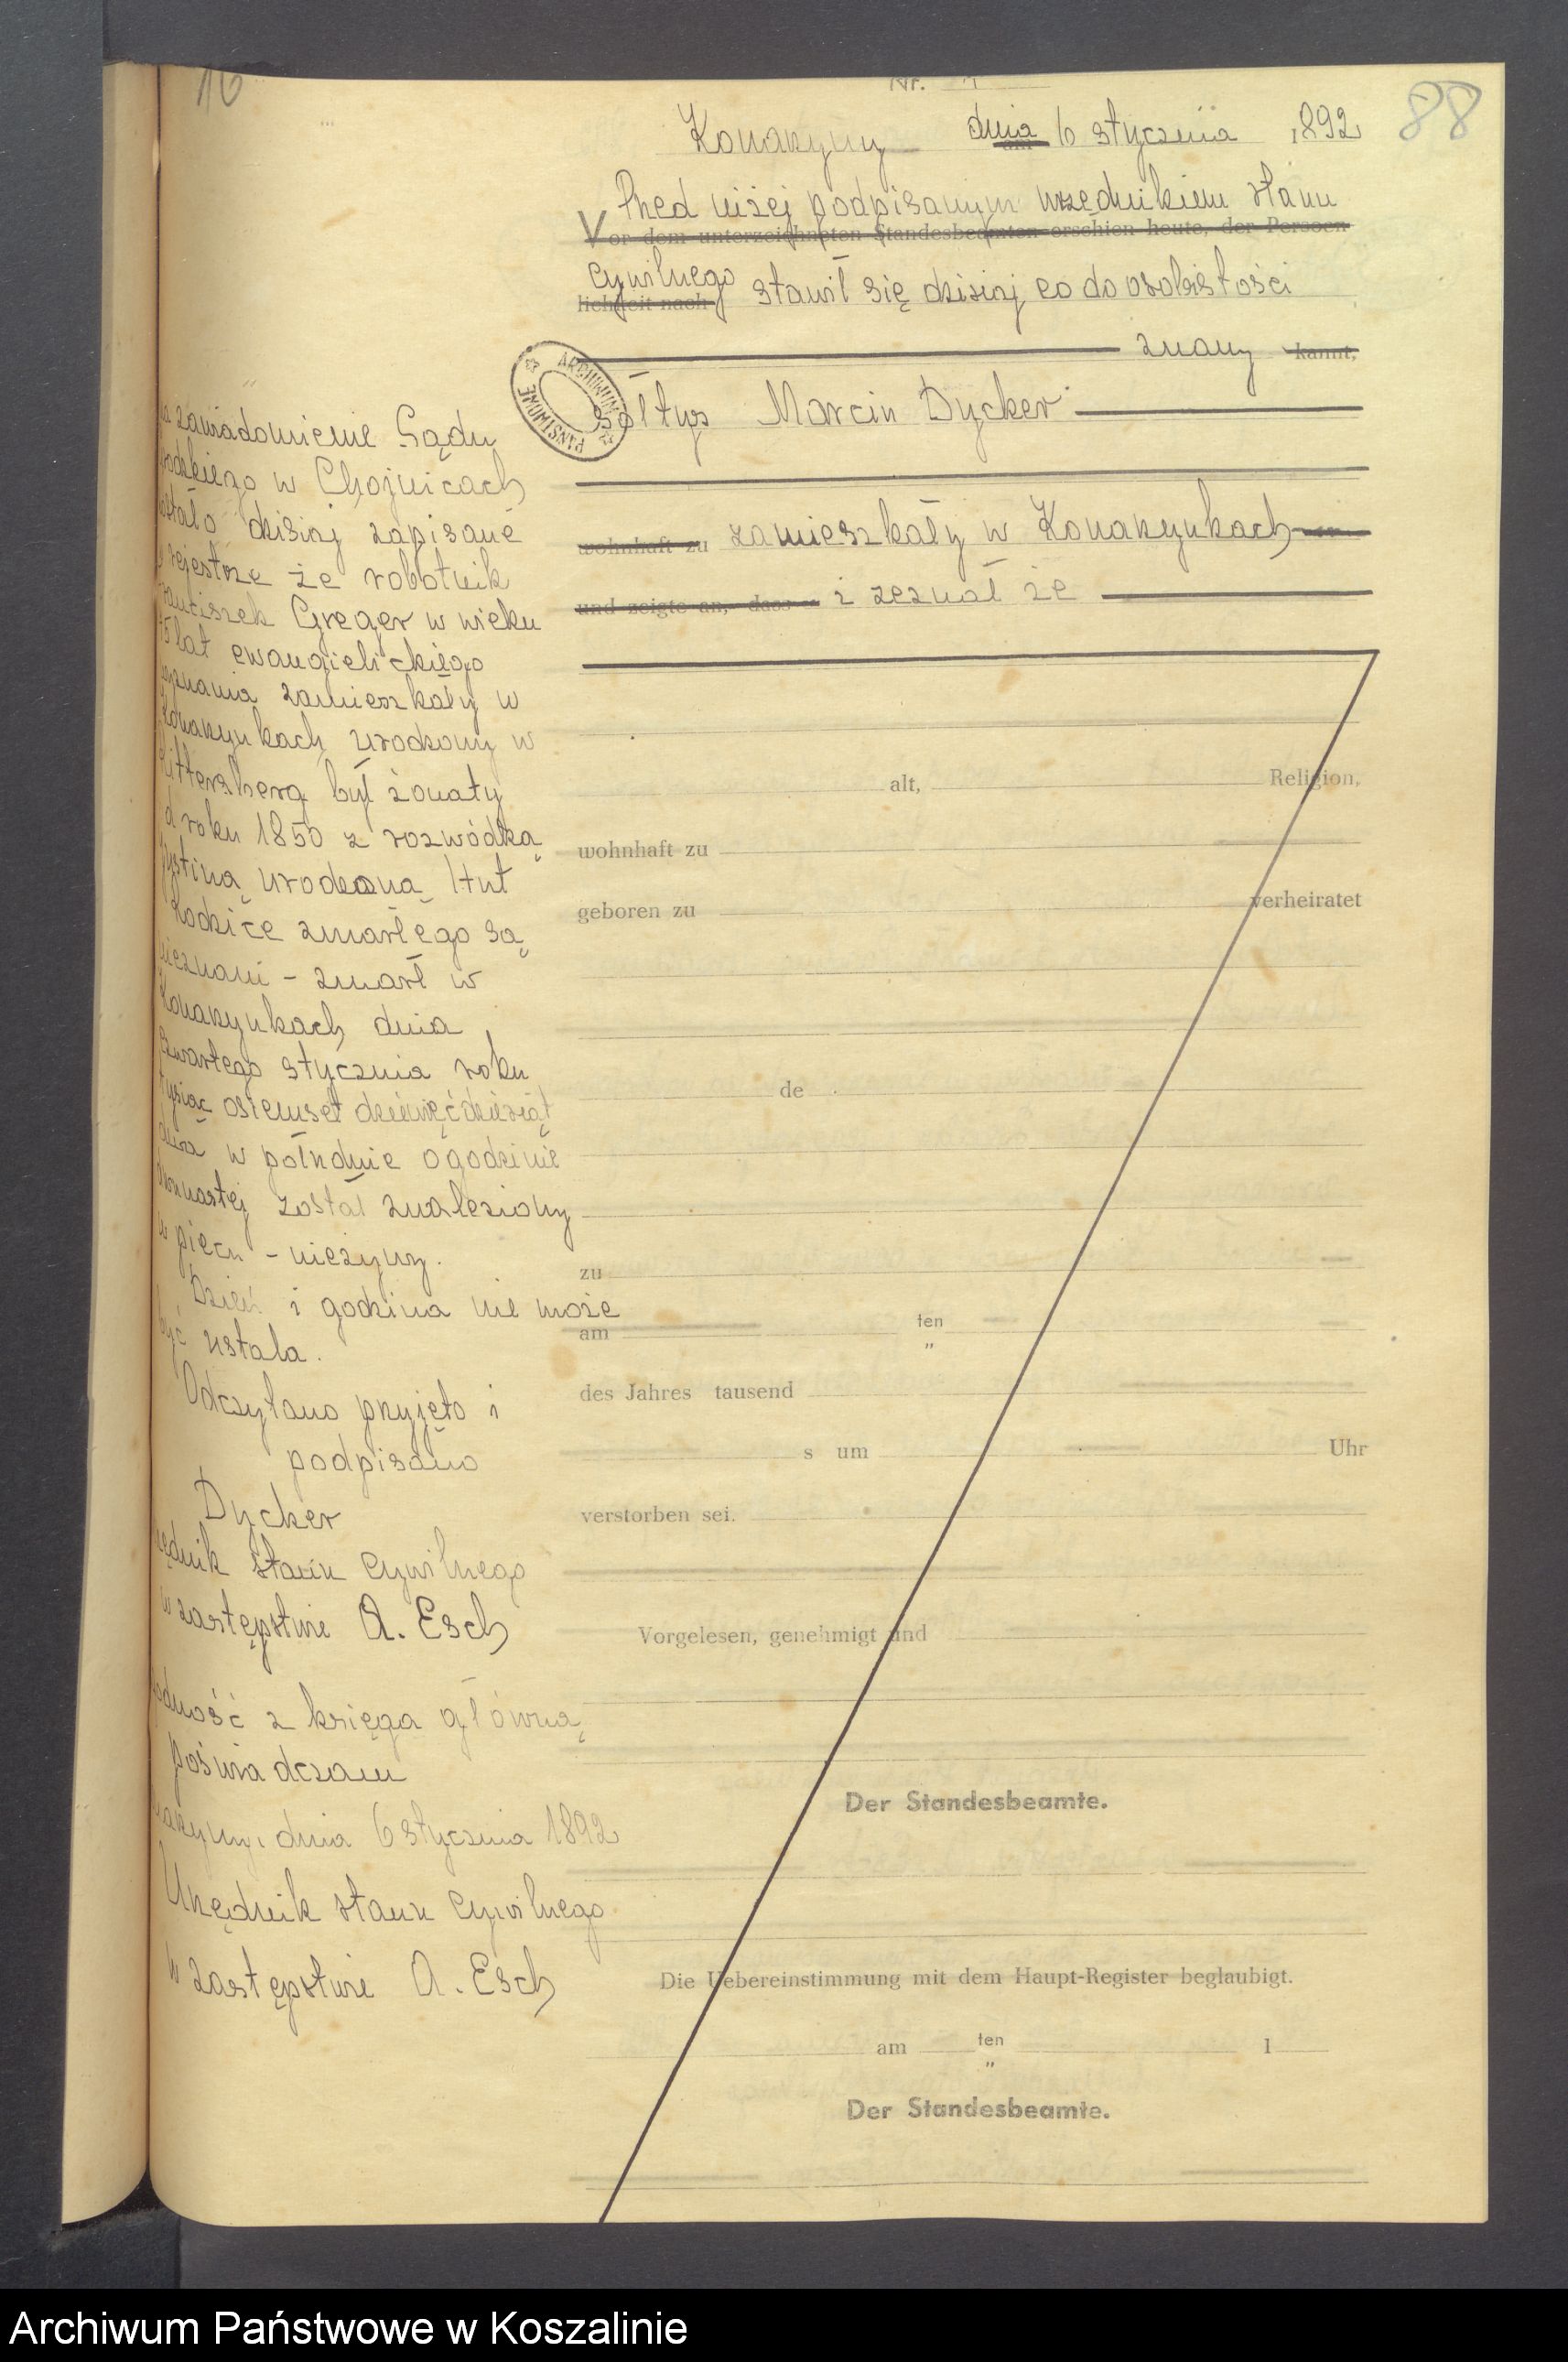 16
Nr. 1
88
Konarzyny dnia 6 stycznia 1892
Przed niżej podpisanym urzędnikiem stanu
Vor dem unterzeichneten Standesbeamten erschien heute, der Persoen
cywilnego stawił się dzisiaj co do osobistości
lichkeit nach
znany kannt,
ARCHIWUM PAŃSTWOWE
sołtys Marcin Dycker
wohnhaft zu zamieszkały w Konarzynkach
und zeigte an, dass i zeznał że
zawiadomienie Sądu
w Chojnicach
dzisiaj zapisane
rejestrze że robotnik
Greger w wieku
lat ewangielickiego
zamieszkały w
urodzony w
był żonaty
roku 1850 z rozwódką
urodzoną Hut
Rodzice zmarłego są
nieznani - zmarł w
Konarzynkach dnia
czwartego stycznia roku
tysiąc osiemset dziewięćdziesiąt
dwa w południe o godzinie
został znalesiony
w piecu - nieżywy.
Dzień i godzina nie może
być ustala.
Odczytano przyjęto i
podpisano
Dycker
stanu cywilnego
w zastępstwie A. Esch
z księga główną
poświadczam
dnia 6 stycznia 1892
Urzędnik stanu cywilnego
w zastępstwie A. Esch
alt, Religion,
wohnhaft zu
geboren zu verheiratet
de
zu
am ten
"
des Jahres tausend
s um Uhr
verstorben sei.
Vorgelesen, genehmigt und
Der Standesbeamte.
Die Uebereinstimmung mit dem Haupt-Register beglaubigt.
am ten 1
"
Der Standesbeamte.
Archiwum Państwowe w Koszalinie